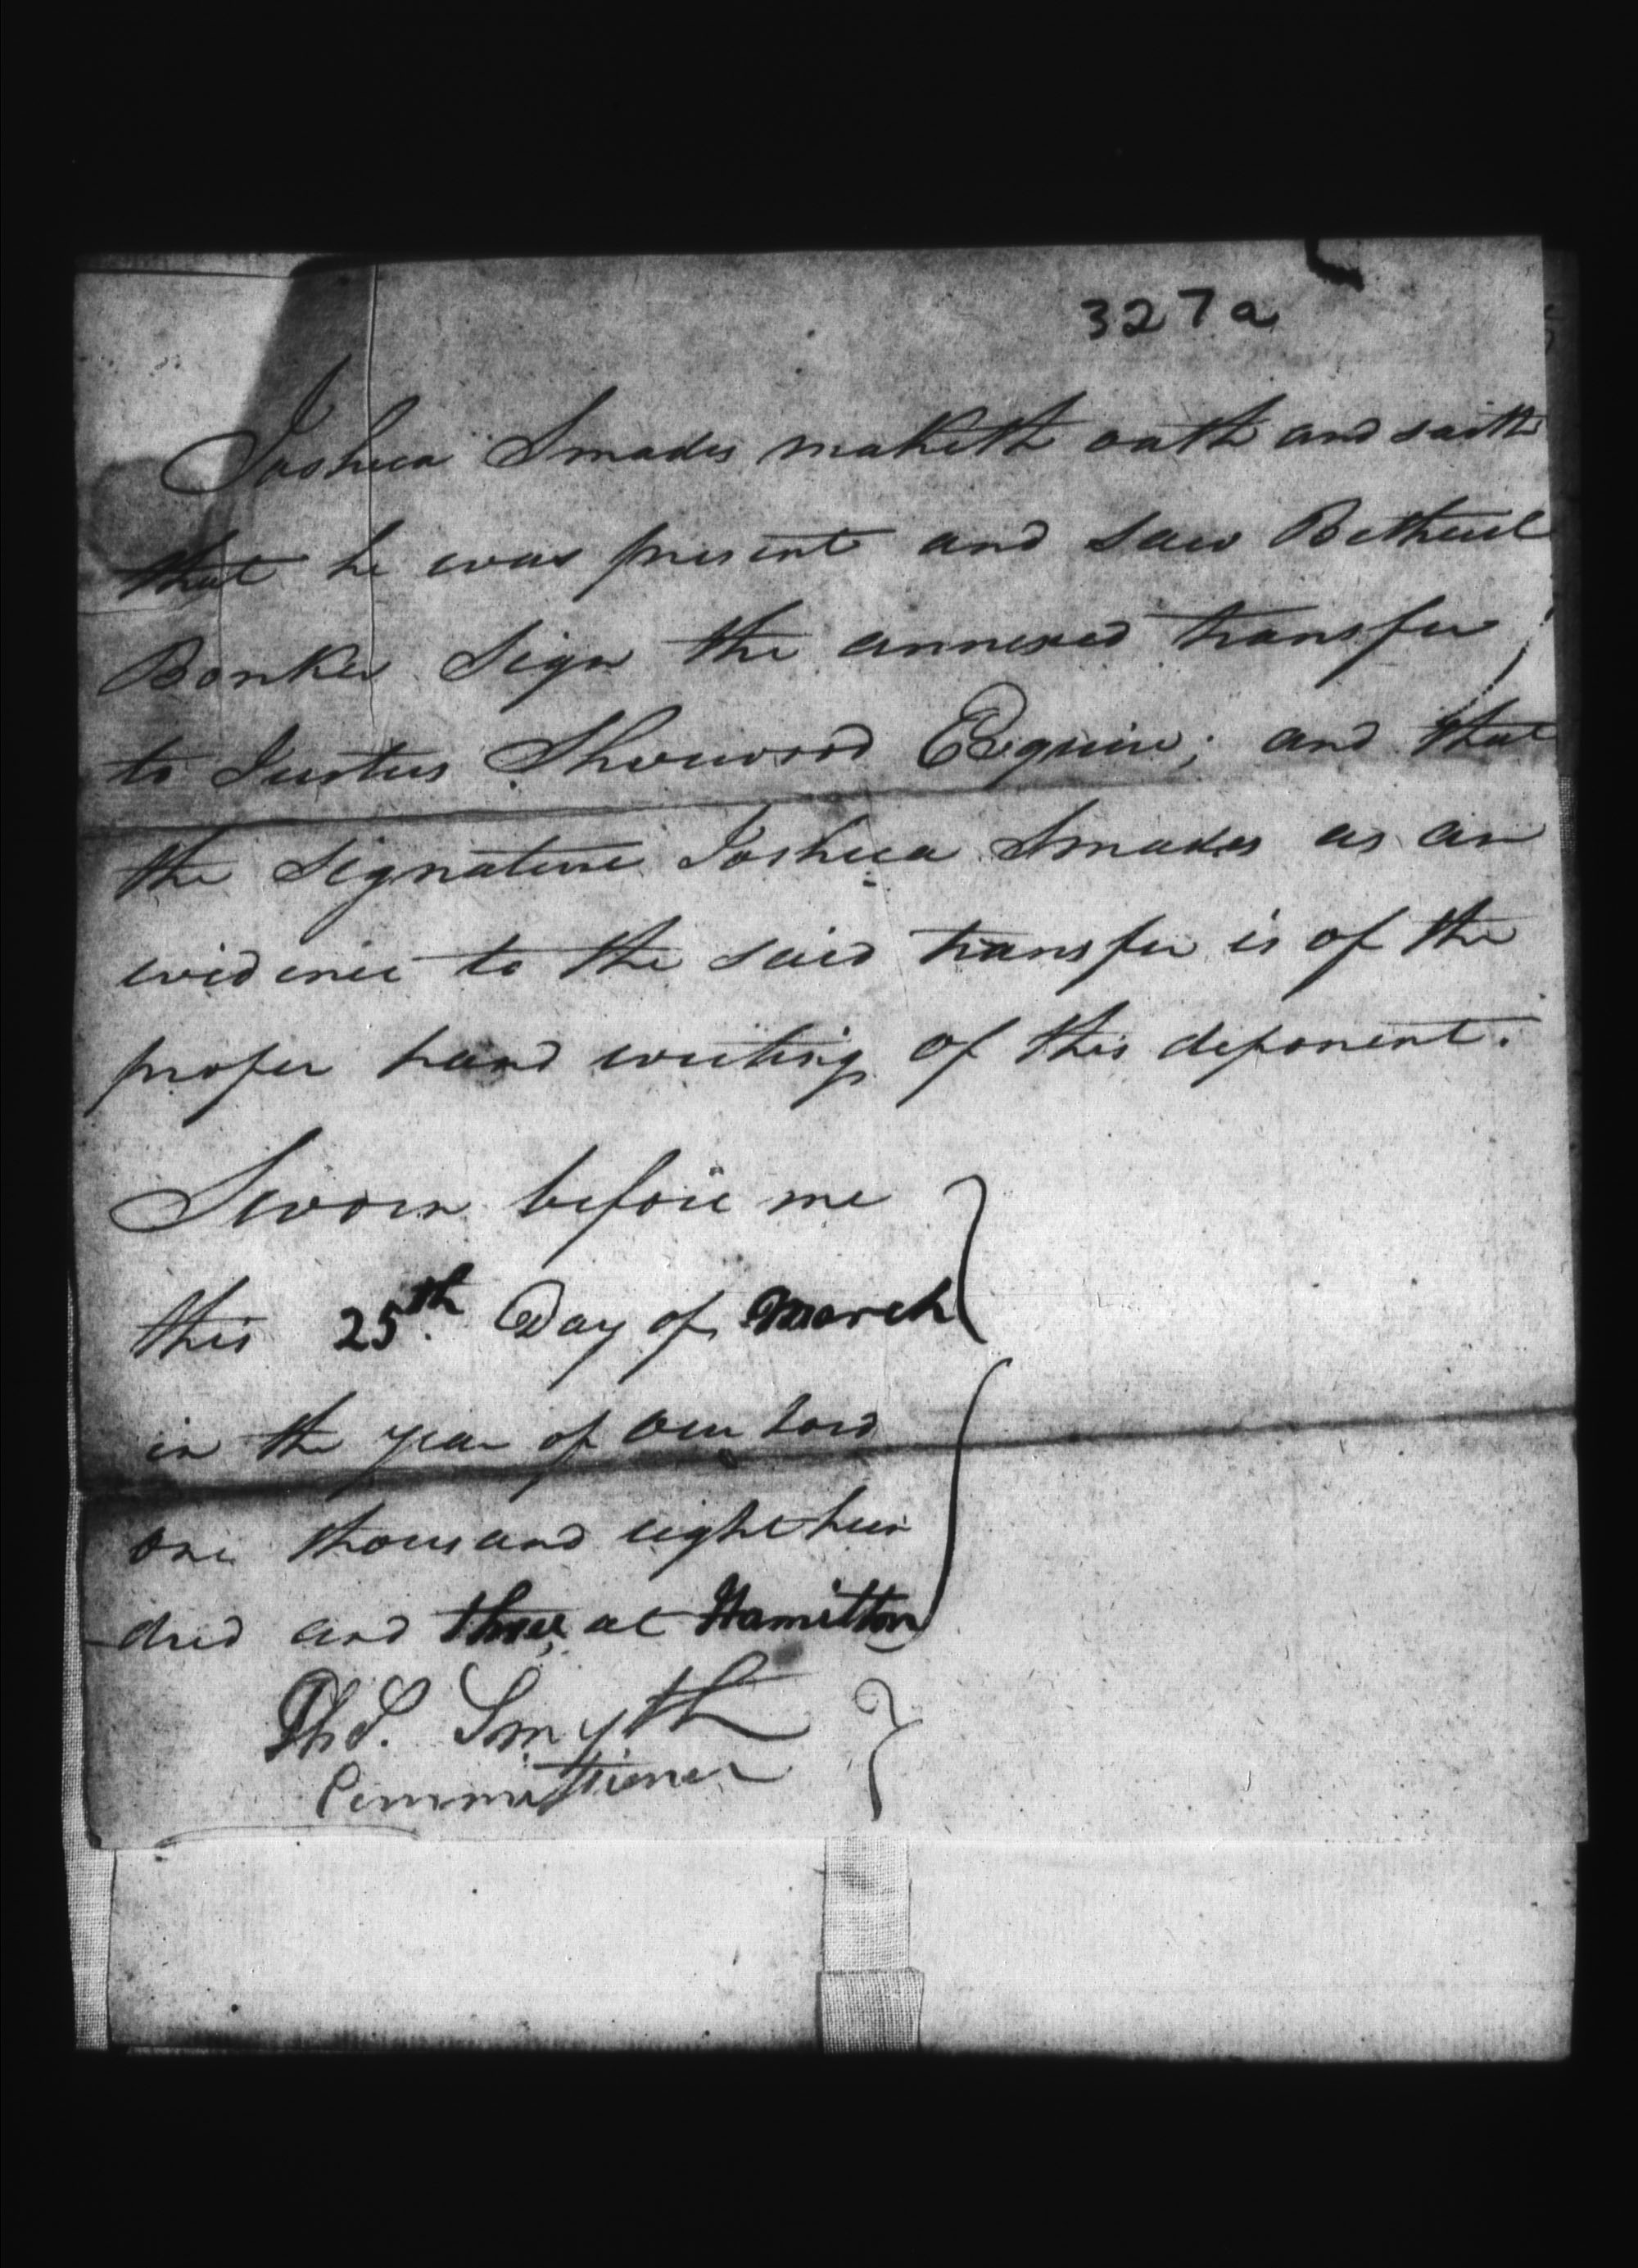 327a
Joshua Smades maketh oath and saith
that he was present and saw Bethuel
Bonker Sign the annexed transfer
to Justus Sherwood Esquire; and that
the signature Joshua Smades as an
evidence to the said transfer is of the
proper hand writing of this deponent.
Sworn before me
this 25th Day of March
in the year of our Lord
one thousand eight hun
dred and three at Hamilton
Thos. Smyth
Commissioner